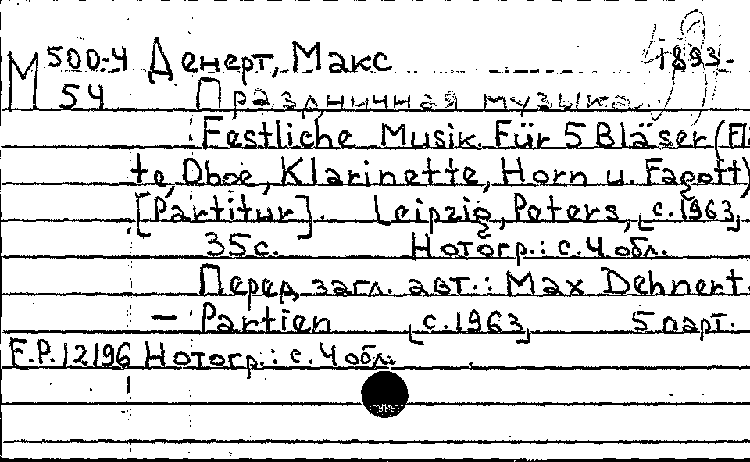 М 500-4 Денерт, Макс 1893-
54 Праздничная музыка.
Festliche Musik. Für 5 Bläser (Flö
te, Oboe, Klarinette, Horn u. Fagott)
[Partitur]. Leipzig, Peters, [c.1963]
35 с. Нотогр.: с. 4 обл.
Перед загл. авт.: Max Dehnert.
— Partien [c.1963] 5 парт.
E.P. 12196 Нотогр.: с. 4 обл.